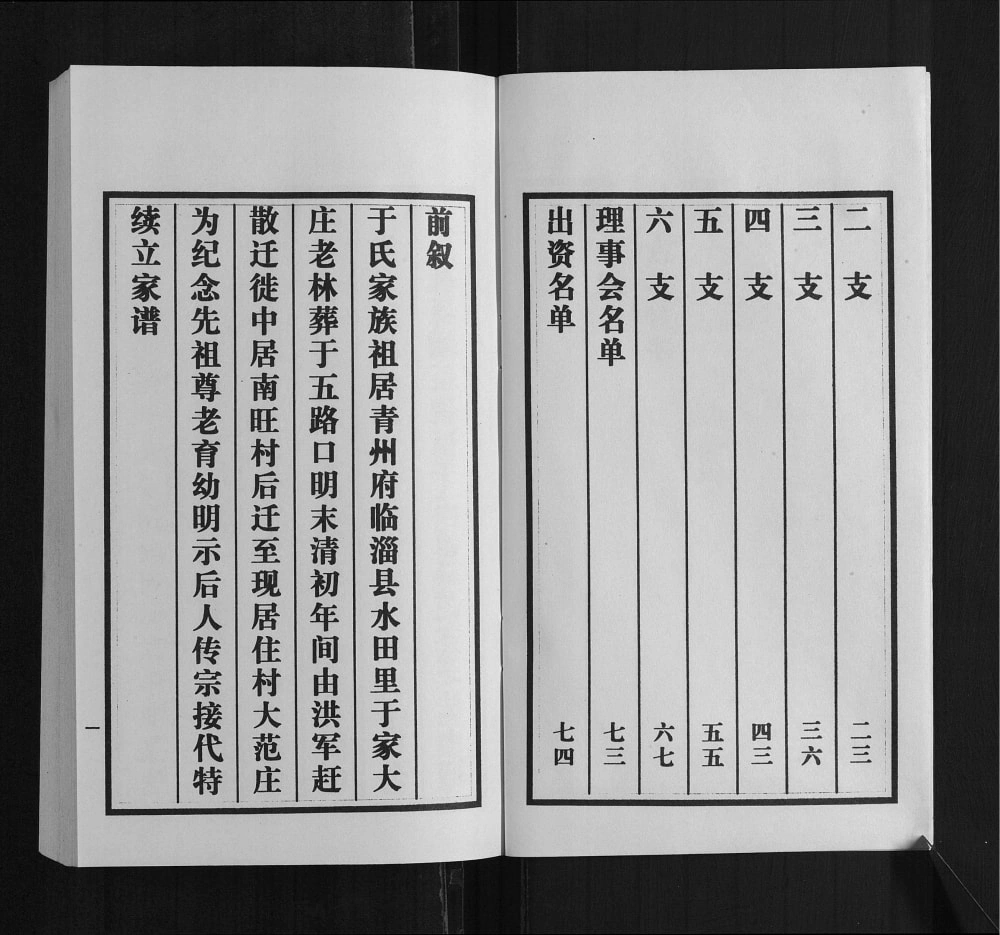 二支 二三
三支 三六
四支 四三
五支 五五
六支 六七
理事会名单 七三
出资名单 七四
前叙
于氏家族祖居青州府临淄县水田里于家大
庄老林葬于五路口明末清初年间由洪军赶
散迁徙中居南旺村后迁至现居住村大范庄
为纪念先祖尊老育幼明示后人传宗接代特
续立家谱
一